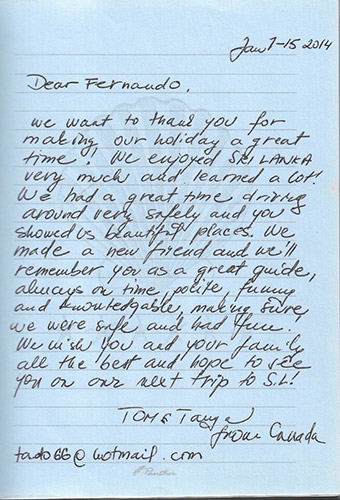 Jan 7-15 2014
Dear Fernando,
we want to thank you for
making our holiday a great
time! We enjoyed SRI LANKA
very much and learned a lot!
We had a great time driving
around very safely and you
showed us beautiful places. We
made a new friend and we'll
remember you as a great guide,
always on time, polite, funny
and knowledgable, making sure,
we were safe and had fun.
We wish you and your family
all the best and hope to see
you on our next trip to S.L!
TOM & Tanya
from Canada
tado66@hotmail.com
Panther